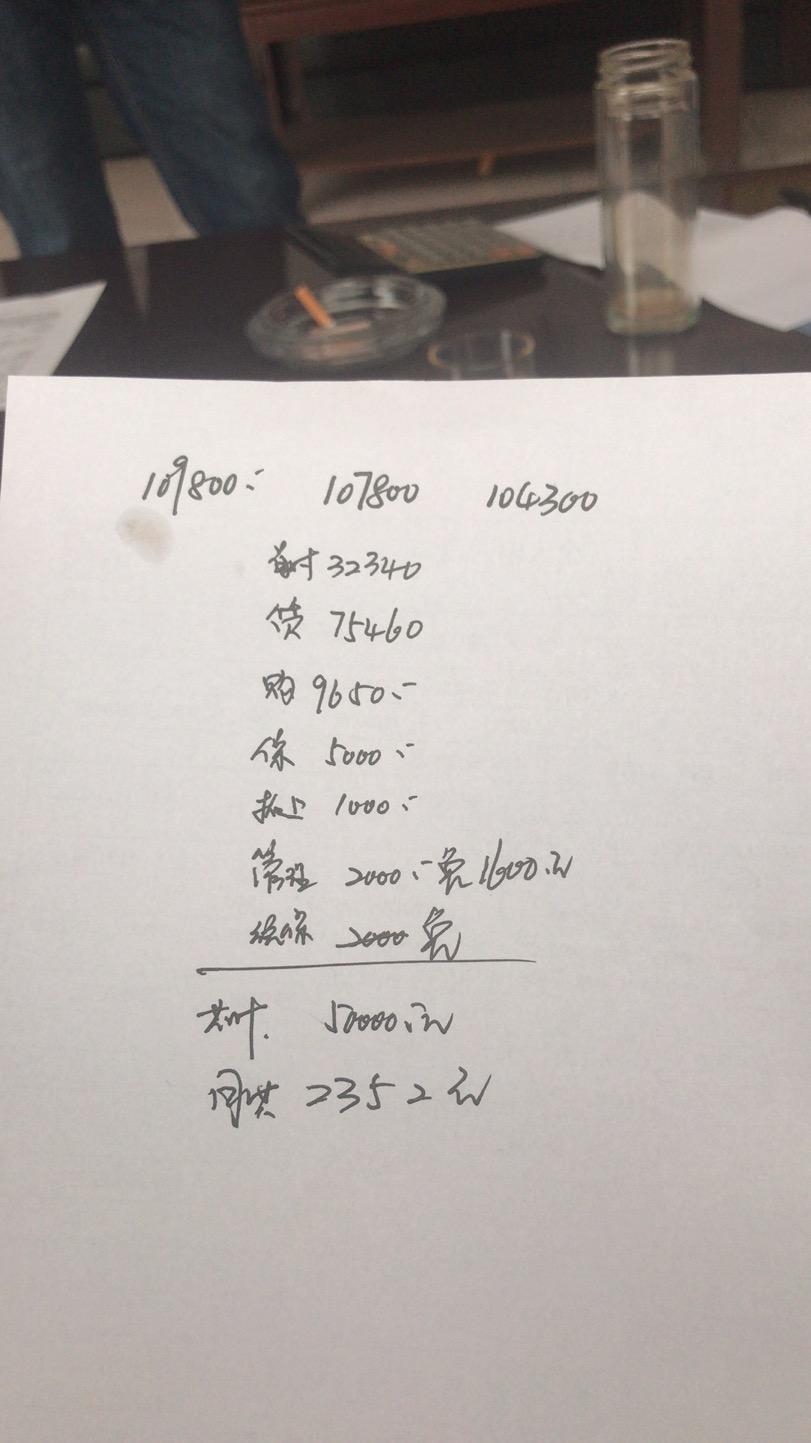 109800.- 107800 104300
首付 32340
贷 75460
购 9650.-
保 5000.-
拓上 1000.-
管理 2000.- 免 1600.元
续保 2000 免
共计. 50000.元
月供 2352元